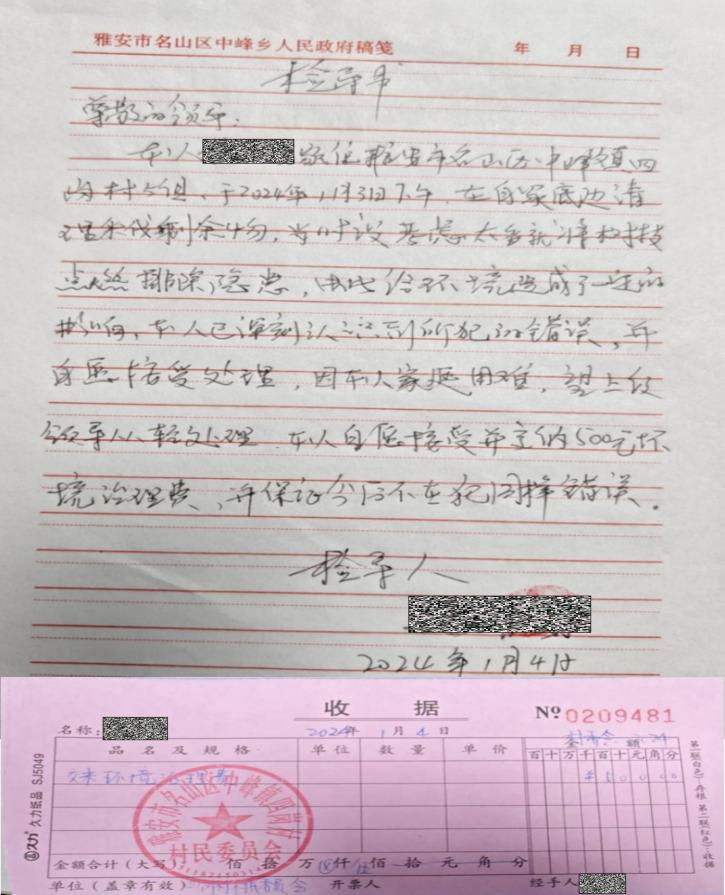 雅安市名山区中峰乡人民政府稿笺 年 月 日
检导书
尊敬的领导.
本人 家住雅安市名山区中峰镇四
岗村5组,于2024年1月3日下午,在自家底边清
理采伐剩余物,当时没考虑太多就将树枝
点燃排除隐患,由此给环境造成了一定的
影响,本人已深刻认识到所犯的错误,并
自愿接受处理,因本人家庭困难,望上级
领导从轻处理 本人自愿接受并主纳500元环
境治理费,并保证今后不在犯同样错误.
检导人
2024年1月4日
收 据
№0209481
名称:
2024年 1 月 4 日
品 名 及 规 格 单 位 数 量 单 价 金 额
百 十 万 千 百 十 元 角 分
交来环境治理费 ¥ 5 0 0 0 0
雅安市名山区中峰镇四岗村
村民委员会
金额合计(大写) 佰 拾 万 仟 伍 佰 拾 元 角 分
单位(盖章有效) 开票人 经手人
久力 久力纸品 SJ5049
第一联(白色):存根 第二联(红色):收据